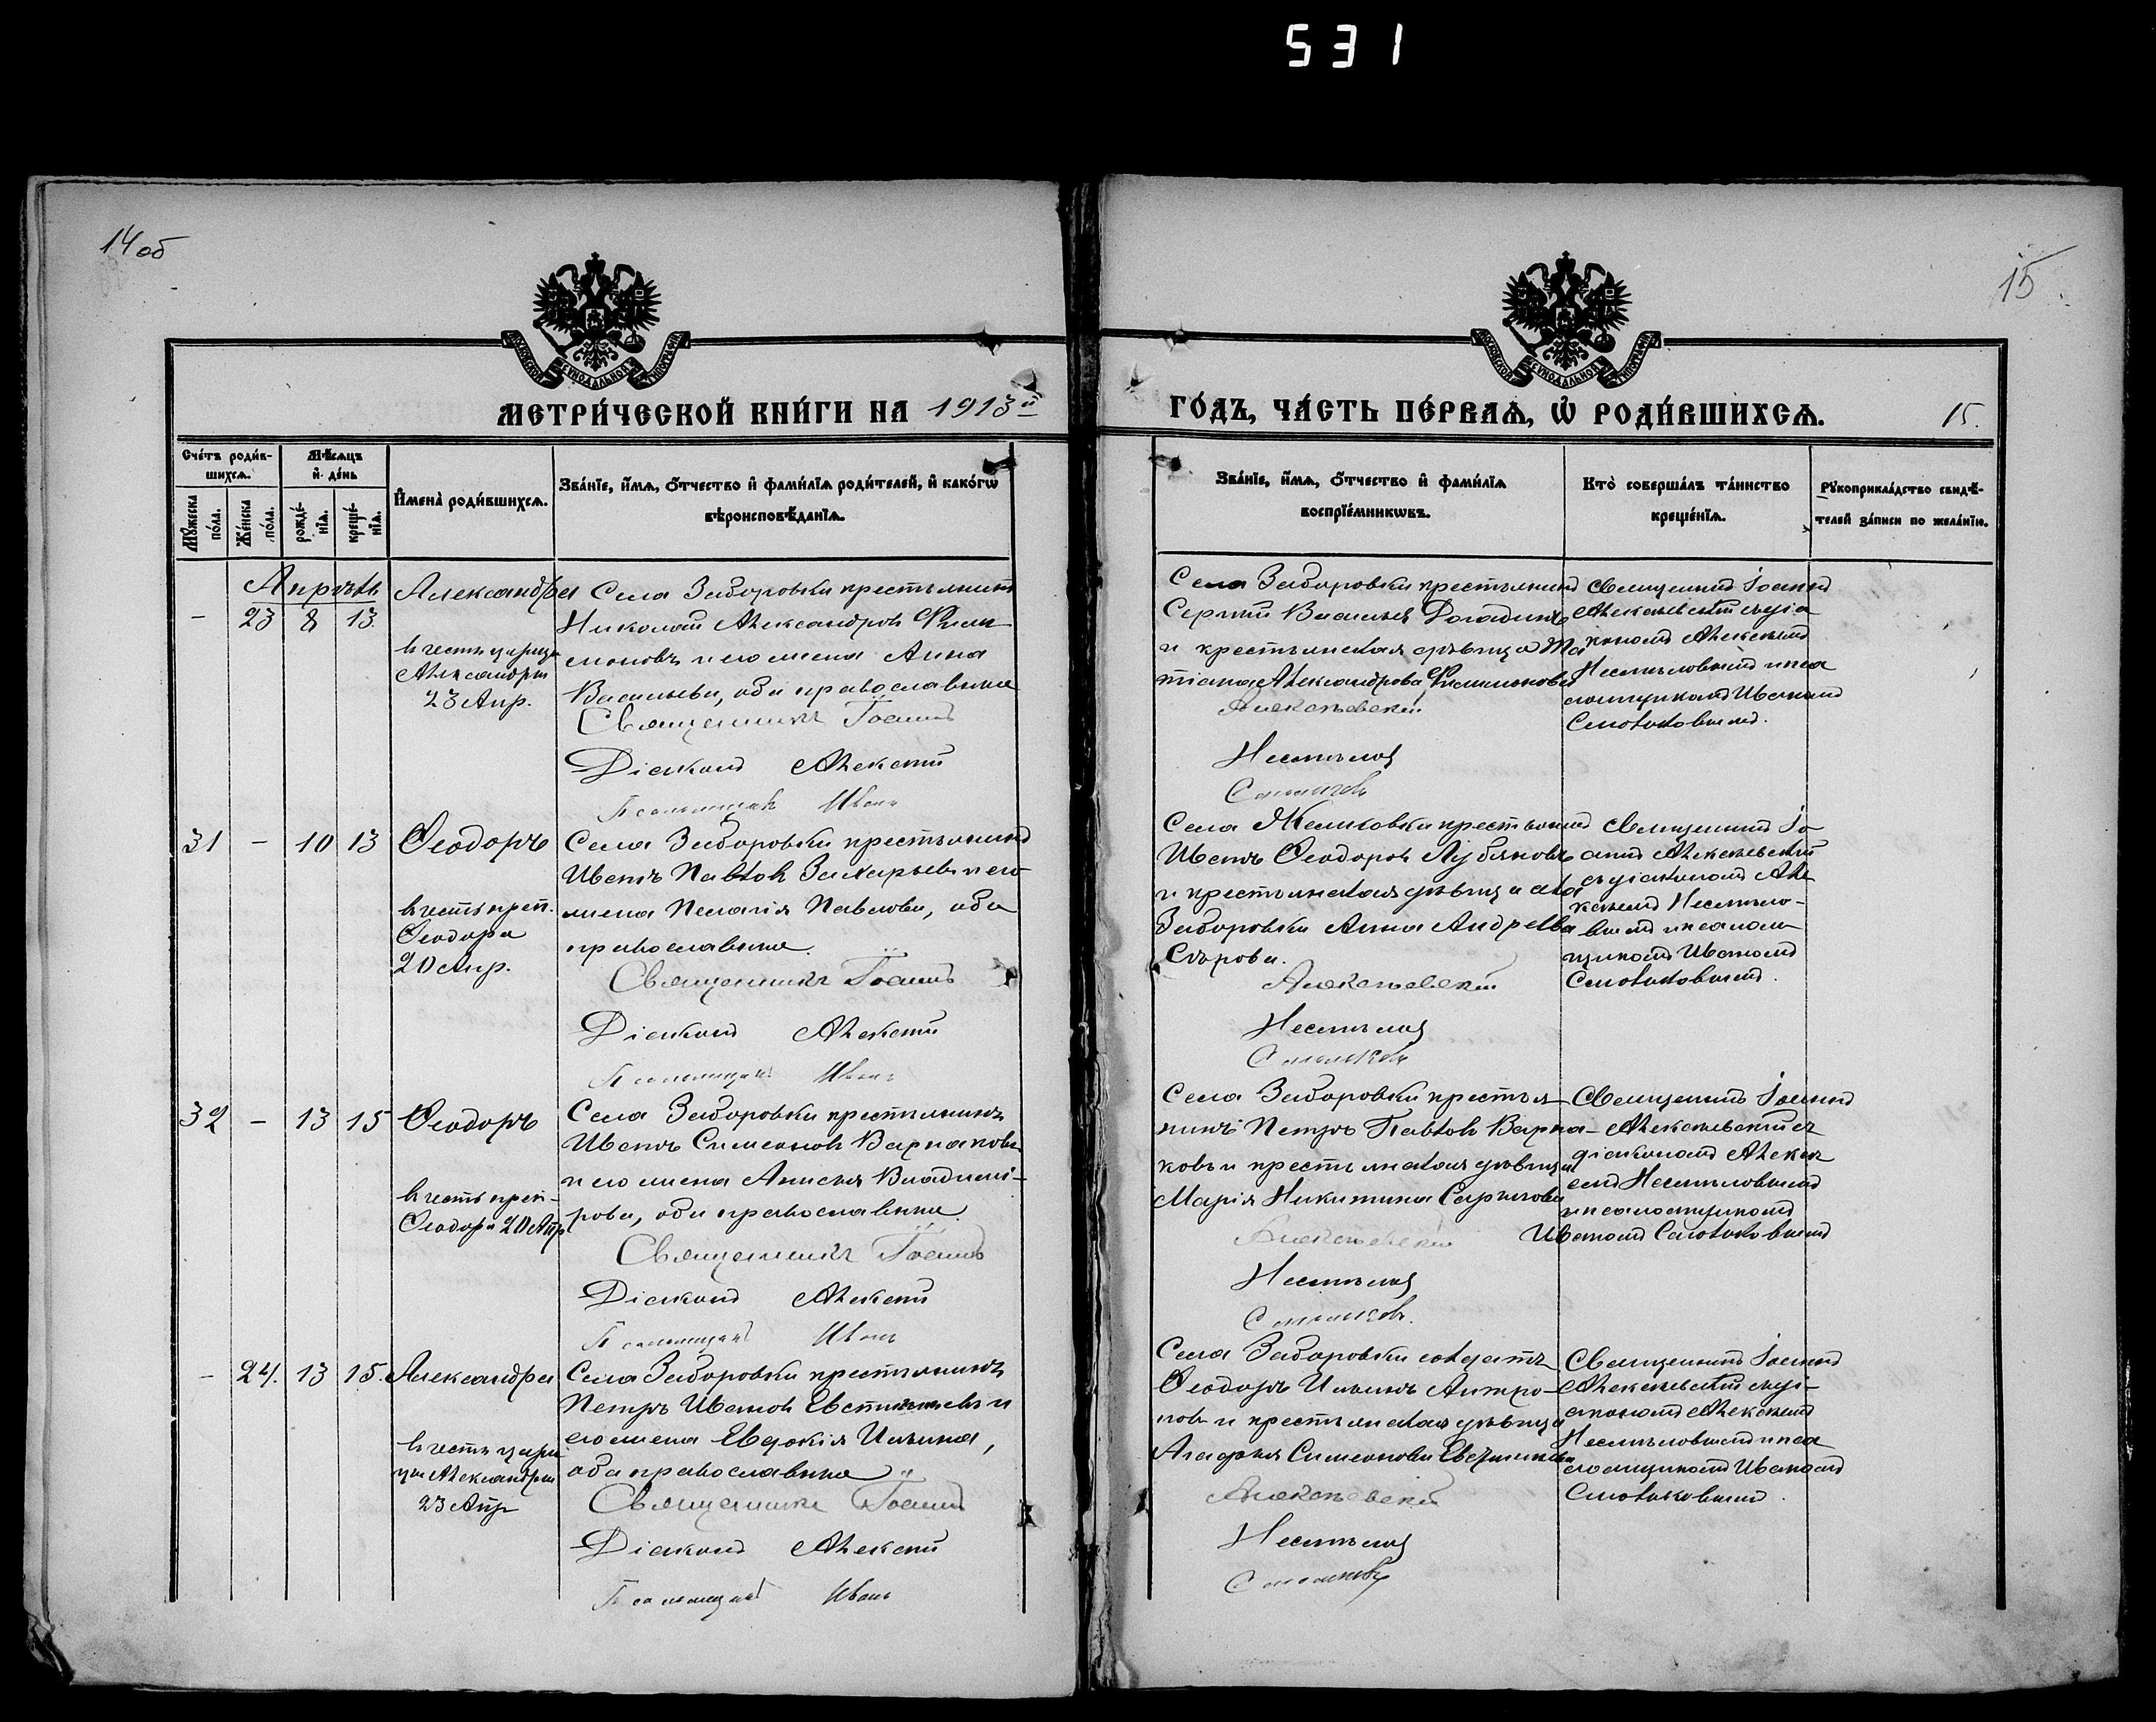 531
14об
15
МОСКОВСКОЙ СѴНОДАЛЬНОЙ ТИПОГРАФІИ
МОСКОВСКОЙ СѴНОДАЛЬНОЙ ТИПОГРАФІИ
МЕТРИ́ЧЕСКОЙ КНИ́ГИ НА 1913й
ГО́ДЪ, ЧА́СТЬ ПЕ́РВАѦ, Ѡ҆ РОДИ́ВШИХСѦ.
15.
Сче́тъ роди́в-
шихсѧ.
Мꙋ́жеска по́ла.
Же́нска по́ла.
Мѣ́сѧцъ
и҆ де́нь
рожде́-
нїѧ.
креще́-
нїѧ.
И҆мена̀ роди́вшихсѧ.
Зва́нїе, и҆́мѧ, ѻ҆́тчество и҆ фами́лїѧ роди́телей, и҆ како́гѡ
вѣроисповѣ́данїѧ.
Зва́нїе, и҆́мѧ, ѻ҆́тчество и҆ фами́лїѧ
воспрїе́мникѡвъ.
Кто̀ соверша́лъ та́инство
креще́нїѧ.
Рꙋкоприкла́дство свидѣ́-
телей за́писи по жела́нїю.
Апрѣль
– 23 8 13.
Александра
в честь царицы
Александры
23 Апр.
Села Заборовки крестьянинъ
Николай Александров Фили-
моновъ и его жена Анна
Васильева, оба православные
Священникъ Іоаннъ
Діаконъ Алексѣй
Псаломщикъ Иванъ
Села Заборовки крестьянинъ
Сергѣй Васильев
и крестьянская дѣвица Та
тіана Александрова Филимонова
Алексѣевскій
Несмѣловъ
Священникъ Іоаннъ
Алексѣевскій съ діа
кономъ Алексѣемъ
Несмѣловымъ и пса
ломщикомъ Иваномъ
31 – 10 13
Ѳеодоръ
в честь преп.
Ѳеодора
20 Апр.
Села Заборовки крестьянинъ
Иванъ Павлов Захарьевъ и его
жена Пелагія Павлова, оба
православные.
Священникъ Іоаннъ
Діаконъ Алексѣй
Псаломщикъ Иванъ
Села крестьянинъ
Иванъ Ѳеодоров
и крестьянская дѣвица села
Заборовки Анна Андреева
Сѣрова.
Алексѣевскій
Несмѣловъ
Священникъ Іо
аннъ Алексѣевскій
съ діакономъ Але
ксѣемъ Несмѣло-
вымъ и псалом
щикомъ Иваномъ
32 – 13 15
Ѳеодоръ
в честь преп-
Ѳеодора 20 Апр
Села Заборовки крестьянинъ
Иванъ Симеонов Варнаковъ
и его жена Анисья Владимі-
рова, оба православные.
Священникъ Іоаннъ
Діаконъ Алексѣй
Псаломщикъ Иванъ
Села Заборовки крестья-
нинъ Петръ Павлов Варна-
ковъ и крестьянская дѣвица
Марія Никитина
Алексѣевскій
Несмѣловъ
Священникъ Іоаннъ
Алексѣевскій съ
діакономъ Алексѣ
емъ Несмѣловымъ
и псаломщикомъ
Иваномъ
– 24. 13 15.
Александра
в честь цари
цы Александры
23 Апр
Села Заборовки крестьянинъ
Петръ Иванов
его жена Евдокія Ильина,
оба православные
Священникъ Іоаннъ
Діаконъ Алексѣй
Псаломщикъ Иванъ
Села Заборовки солдатъ
Ѳеодоръ Ильинъ Антро-
пов и крестьянская дѣвица
Агафья Симеонова
Алексѣевскій
Несмѣловъ
Священникъ Іоаннъ
Алексѣевскій съ ді-
акономъ Алексѣемъ
Несмѣловымъ и пса
ломщикомъ Иваномъ